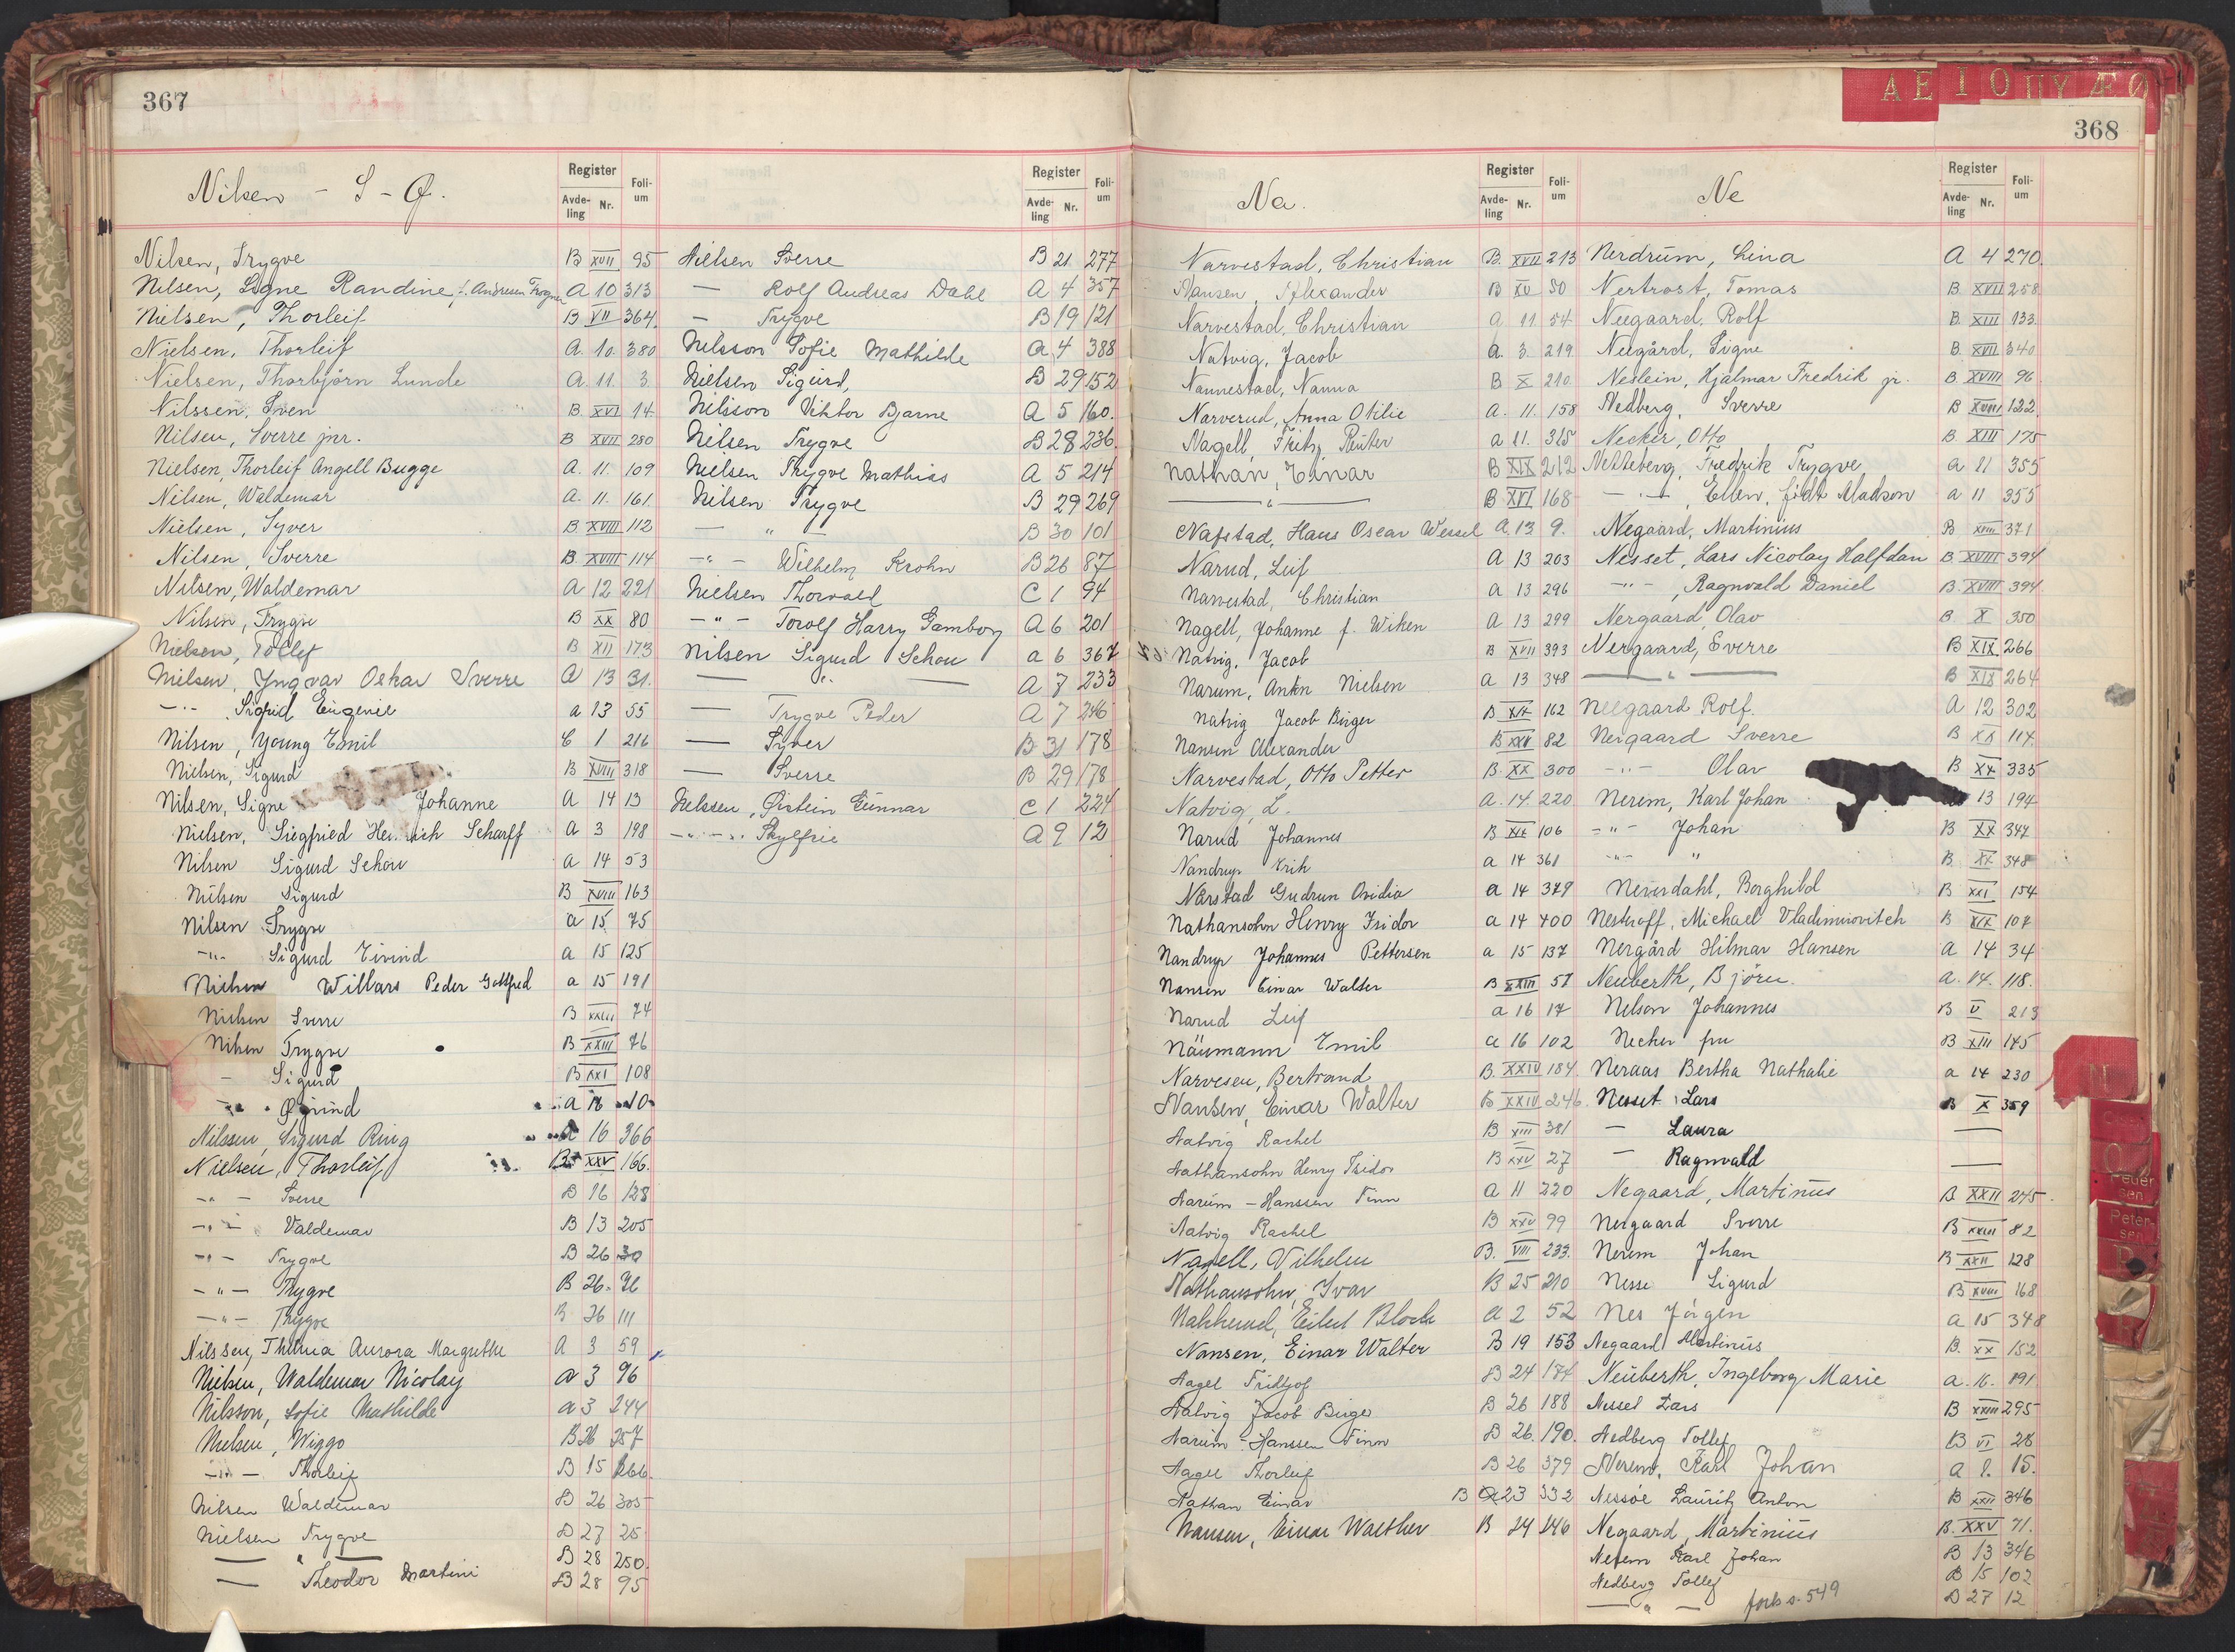 367
Nilsen - S - Ø.
Register
Avde-ling Nr. Foli-um
Nilsen, Trygve B XVII 95
Nilsen, Signe Randine, f. Andresen Trogner A 10 313
Nielsen, Thorleif B VII 364.
Nielsen, Thorleif A. 10. 380
Nielsen, Thorbjörn Lunde A. 11. 3.
Nilssen, Sven B. XVI 14.
Nilsen, Sverre jnr. B XVII 280
Nielsen, Thorleif Angell Bugge A. 11. 109
Nilsen, Waldemar A. 11. 161.
Nielsen, Syver B. XVIII 112
Nilsen, Sverre B. XVIII 114
Nilsen, Waldemar A 12 221
Nilsen, Trygve B XX 80
Nielsen, Tollef B XII 173
Nielsen, Yngvar Oskar Sverre A 13 31.
-"- Sigfrid Eugenie a 13 55
Nilsen, Young Emil C 1 216
Nielsen, Sigurd B XVIII 318
Nilsen, Signe Johanne A 14 13
Nielsen, Siegfried Heinrich Scharff A 3 198
Nilsen Sigurd Schou a 14 53
Nilsen Sigurd B XVIII 163
Nilsen Trygve a 15 75
-"- Sigurd Eivind a 15 125
Nielsen Willars Peder Gottfred a 15 191
Nielsen Sverre B XXIII 74
Nilsen Trygve B XXIII 76
- Sigurd B XXI 108
-"- Øivind a 16 10
Nilssen, Sigurd Ring A 16 366
Nielsen, Thorleif B XXV 166.
-"- Sverre B 16 128
-"- Valdemar B 13 205
-"- Trygve B 26 30
-"- Trygve B 26. 76
-"- Trygve B 26 111
Nilssen, Thelma Aurora Margrethe A 3 59
Nielsen, Waldemar Nicolay a 3 96
Nilsson, Sofie Mathilde a 3 244
Nielsen, Wiggo B 26 257
-"- Thorleif B 15 266.
Nilsen Waldemar B 26 305
Nielsen Trygve B 27 25
— " — B 28 250.
— Theodor Martini B 28 95
Register
Avde-ling Nr. Foli-um
Nielsen Sverre B 21 277
— Rolf Andreas Dahl A 4 357
— Trygve B 19 121
Nilsson Sofie Mathilde A 4 388
Nielsen Sigurd, B 29 152
Nilsson Viktor Bjarne A 5 160.
Nilsen Trygve B 28 236.
Nielsen Trygve Mathias A 5 214
Nilsen Trygve B 29 269
— " — B 30 101
-"- Wilhelm Krohn B 26 87
Nielsen Thorvald C 1 94
-"- Torolf Harry Gamborg A 6 201
Nilsen Sigurd Schou a 6 367
— " — A 7 233
— Trygve Peder A 7 246
— Syver B 31 178
— Sverre B 29 178
Nilssen, Øistein Gunnar C 1 224
-"- A 9 12
368
A E I O U Y Æ Ø
Na.
Register
Avde-ling Nr. Foli-um
Narvestad, Christian B. XVII 213
Nansen, Alexander B XV 50
Narvestad, Christian a 11 54
Natvig, Jacob a. 3. 219
Nannestad, Nanna B X 210
Narverud, Anna Otilie a. 11. 158
Nagell, Fritz Rüter a 11. 315
Nathan, Einar B XIX 212
— " — B XVI 168
Nafstad, Hans Oscar Wessel A. 13 9.
Narud, Leif A 13 203
Narvestad, Christian a 13 296
Nagell, Johanne f. Wiken A 13 299
Natvig, Jacob B XVII 393
Narum, Ankn Nielsen a 13 348
Natvig Jacob Birger B XIX 162
Nansen Alexander B XXV 82
Narvestad, Otto Petter B. XX 300
Natvig, L. a. 14. 220
Narud Johannes B XIX 106
Nandrup Erik a 14 361
Narstad Gudrun Ovidia a 14 379
Nathansohn Henry Isidor a 14 400
Nandrup Johannes Pettersen a 15 137
Nansen Einar Walter B XXIII 57
Narud Leif a 16 17
Naumann Emil a 16 102
Narvesen, Bertrand B. XXIV 184.
Nansen, Einar Walter B XXIV 246.
Natvig Rachel B XIII 381
Nathansohn Henry Isidor B XXV 27
Narum-Hanssen Finn A 11 220
Natvig Rachel B XXV 99
Nagell, Vilhelm B. VIII 233.
Nathansohn, Ivar B 25 210
Nakkerud, Eilert Bloch a 2 52
Nansen, Einar Walter B 19 153
Nagel Fridtjof B 24 184
Natvig Jacob Birger B 26 188
Narum-Hanssen Finn B 26. 190.
Nagel Thorleif B 26 379
Nathan Einar B 23 332
Nansen, Einar Walther B 24 246
Ne
Register
Avde-ling Nr. Foli-um
Nerdrum, Lina A 4 270.
Nertrost, Tomas B. XVII 258
Neegaard, Rolf B. XIII 133.
Neegård, Signe B. XVII 340
Neslein, Hjalmar Fredrik jr. B. XVIII 96
Nedberg, Sverre B XVIII 122.
Necker, Otto B. XIII 175
Netteberg, Fredrik Trygve a 11 355
-"-, Ellen, født Madsen a 11 355
Negaard, Martinius B XIII 371
Nesset, Lars Nicolay Halfdan B XVIII 394
-"-, Ragnvald Daniel B. XVIII 394
Nergaard, Olav B. X 350
Nergaard, Sverre B XIX 266
— " — B XIX 264
Neegaard Rolf. A 12 302
Nergaard Sverre B XX 117.
-"- Olav B XX 335
Nerem, Karl Johan 13 194
-"- Johan B XX 347
-"- " B. XX 348
Neverdahl, Borghild B XXI 154
Nesteroff, Michael Vladimirovitch B XIX 107
Nergård Hilmar Hansen A 14 34
Neuberth, Björn. a. 14. 118.
Nelson Johannes B V 213
Necker fru B XIII 145
Neraas Bertha Nathalie a 14 230
Nesset Lars B X 359
— Laura —
— Ragnvald —
Negaard, Martinius B XXII 245.
Nergaard Sverre B XXIII 82
Nerem Johan B XXII 128
Nesse Sigurd B XVIII 168
Nes Jörgen a 15 348
Negaard Martinius B. XX 152
Neuberth, Ingeborg Marie a. 16. 191
Nesset Lars B XXIII 295
Nedberg Tollef B VI 28
Nerem, Karl Johan a 1. 15.
Nessöe Lauritz Anton B XXII 346
Negaard, Martinius B. XXV 71.
Nerem Karl Johan B 13 346
Nedberg Tollef B 15 102
— " — B 27 12
forts s. 549
N
Peder sen
Peter-sen
P